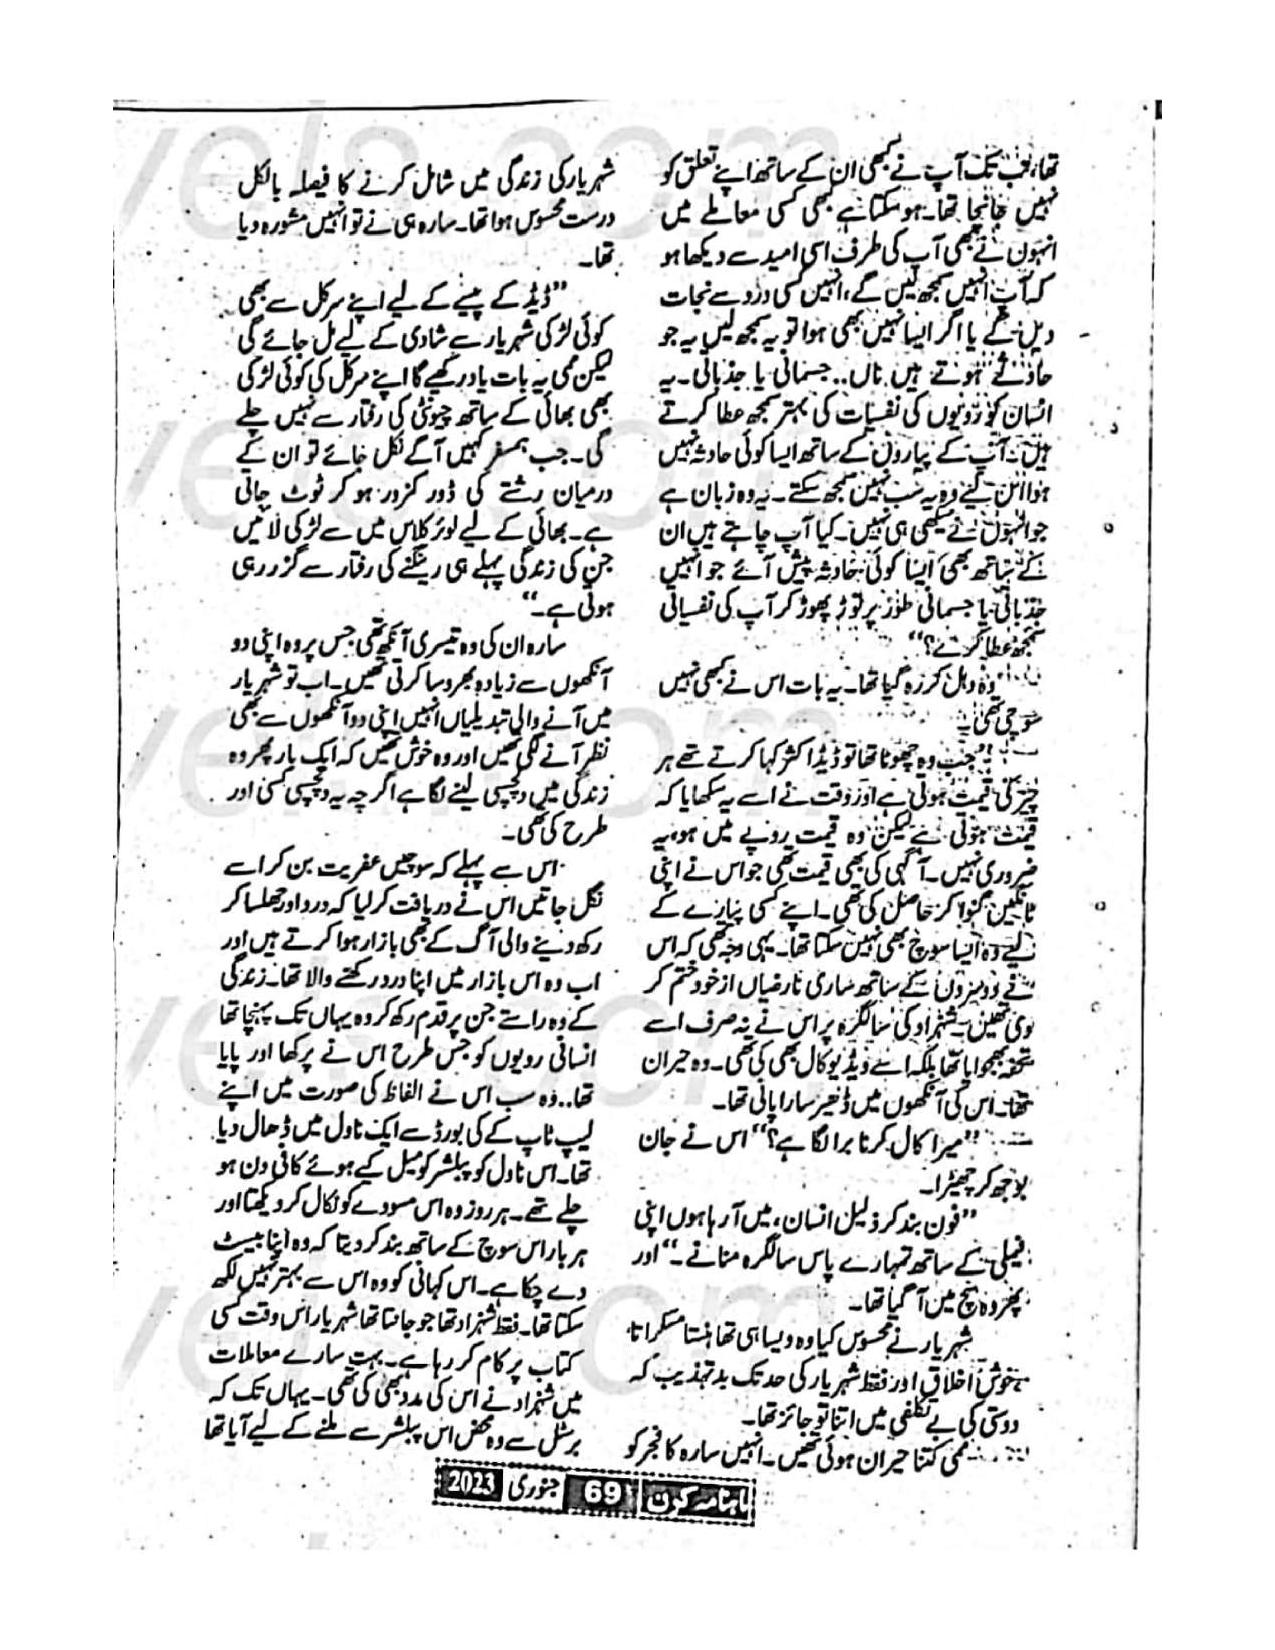 تھا، تب تک آپ نے کبھی ان کے ساتھ اپنے تعلق کو
نہیں جانچا تھا۔ ہو سکتا ہے کبھی کسی معاملے میں
انہوں نے بھی آپ کی طرف اسی امید سے دیکھا ہو
کہ آپ انہیں سمجھ لیں گے، انہیں کسی درد سے نجات
دیں گے یا اگر ایسا نہیں بھی ہوا تو یہ سمجھ لیں یہ جو
حادثے ہوتے ہیں ناں.. جسمانی یا جذباتی۔ یہ
انسان کو رویوں کی نفسیات کی بہتر سمجھ عطا کرتے
ہیں۔ آپ کے پیاروں کے ساتھ ایسا کوئی حادثہ نہیں
ہوا اس لیے وہ یہ سب نہیں سمجھ سکتے۔ یہ وہ زبان ہے
جو انہوں نے سیکھی ہی نہیں۔ کیا آپ چاہتے ہیں ان
کے ساتھ بھی ایسا کوئی حادثہ پیش آئے جو انہیں
جذباتی یا جسمانی طور پر توڑ پھوڑ کر آپ کی نفسیاتی
سمجھ عطا کرے؟“
وہ دہل کر رہ گیا تھا۔ یہ بات اس نے کبھی نہیں
سوچی تھی۔
جب وہ چھوٹا تھا تو ڈیڈ اکثر کہا کرتے تھے ہر
چیز کی قیمت ہوتی ہے اور وقت نے اسے یہ سکھایا کہ
قیمت ہوتی ہے لیکن وہ قیمت روپے میں ہو، یہ
ضروری نہیں۔ آگہی کی بھی قیمت تھی جو اس نے اپنی
ٹانگیں گنوا کر حاصل کی تھی۔ اپنے کسی پیارے کے
لیے وہ ایسا سوچ بھی نہیں سکتا تھا۔ یہی وجہ تھی کہ اس
نے دوسروں کے ساتھ ساری ناراضیاں از خود ختم کر
دی تھیں۔ شہزاد کی سالگرہ پر اس نے نہ صرف اسے
تحفہ بھجوایا تھا بلکہ اسے ویڈیو کال بھی کی تھی۔ وہ حیران
تھا۔ اس کی آنکھوں میں ڈھیر سارا پانی تھا۔
”میرا کال کرنا برا لگا ہے؟“ اس نے جان
بوجھ کر چھیڑا۔
”فون بند کر ذلیل انسان، میں آ رہا ہوں اپنی
فیملی کے ساتھ تمہارے پاس سالگرہ منانے۔“ اور
پھر وہ سچ میں آ گیا تھا۔
شہریار نے محسوس کیا وہ ویسا ہی تھا ہنستا مسکراتا
خوش اخلاق اور فقط شہریار کی حد تک بدتہذیب کہ
دوستی کی بے تکلفی میں اتنا تو جائز تھا۔
ممی کتنا حیران ہوئی تھیں۔ انہیں سارہ کا فجر کو
شہریار کی زندگی میں شامل کرنے کا فیصلہ بالکل
درست محسوس ہوا تھا۔ سارہ ہی نے تو انہیں مشورہ دیا
تھا۔
”ڈیڈ کے پیسے کے لیے اپنے سرکل سے بھی
کوئی لڑکی شہریار سے شادی کے لیے مل جائے گی
لیکن ممی یہ بات یاد رکھیے گا اپنے سرکل کی کوئی لڑکی
بھی بھائی کے ساتھ چیونٹی کی رفتار سے نہیں چلے
گی۔ جب ہمسفر کہیں آگے نکل جائے تو ان کے
درمیان رشتے کی ڈور کمزور ہو کر ٹوٹ جاتی
ہے۔ بھائی کے لیے لوئر کلاس میں سے لڑکی لائیں
جن کی زندگی پہلے ہی رینگنے کی رفتار سے گزر رہی
ہوتی ہے۔“
سارہ ان کی وہ تیسری آنکھ تھی جس پر وہ اپنی دو
آنکھوں سے زیادہ بھروسا کرتی تھیں۔ اب تو شہریار
میں آنے والی تبدیلیاں انہیں اپنی دو آنکھوں سے بھی
نظر آنے لگی تھیں اور وہ خوش تھیں کہ ایک بار پھر وہ
زندگی میں دلچسپی لینے لگا ہے اگرچہ یہ دلچسپی کسی اور
طرح کی تھی۔
اس سے پہلے کہ سوچیں عفریت بن کر اسے
نگل جاتیں اس نے دریافت کر لیا کہ درد اور جھلسا کر
رکھ دینے والی آگ کے بھی بازار ہوا کرتے ہیں اور
اب وہ اس بازار میں اپنا درد رکھنے والا تھا۔ زندگی
کے وہ راستے جن پر قدم رکھ کر وہ یہاں تک پہنچا تھا
انسانی رویوں کو جس طرح اس نے پرکھا اور پایا
تھا.. وہ سب اس نے الفاظ کی صورت میں اپنے
لیپ ٹاپ کے کی بورڈ سے ایک ناول میں ڈھال دیا
تھا۔ اس ناول کو پبلشر کو میل کیے ہوئے کافی دن ہو
چلے تھے۔ ہر روز وہ اس مسودے کو نکال کر دیکھتا اور
ہر بار اس سوچ کے ساتھ بند کر دیتا کہ وہ اپنا بیسٹ
دے چکا ہے۔ اس کہانی کو وہ اس سے بہتر نہیں لکھ
سکتا تھا۔ فقط شہزاد تھا جو جانتا تھا شہریار اس وقت کسی
کتاب پر کام کر رہا ہے۔ بہت سارے معاملات
میں شہزاد نے اس کی مدد بھی کی تھی۔ یہاں تک کہ
برسٹل سے وہ محض اس پبلشر سے ملنے کے لیے آیا تھا
ماہنامہ کرن 69 جنوری 2023